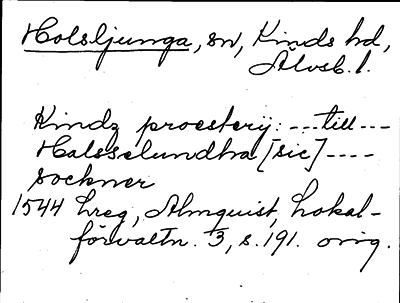 Holsljunga, sn, Kinds hd,
Älvsb. l.
Kindz proesterij: --- till ---
Halsselundha [sic] ----
sockner
1544 hreg, Almquist, Lokal-
förvaltn. 3, s. 191. orig.